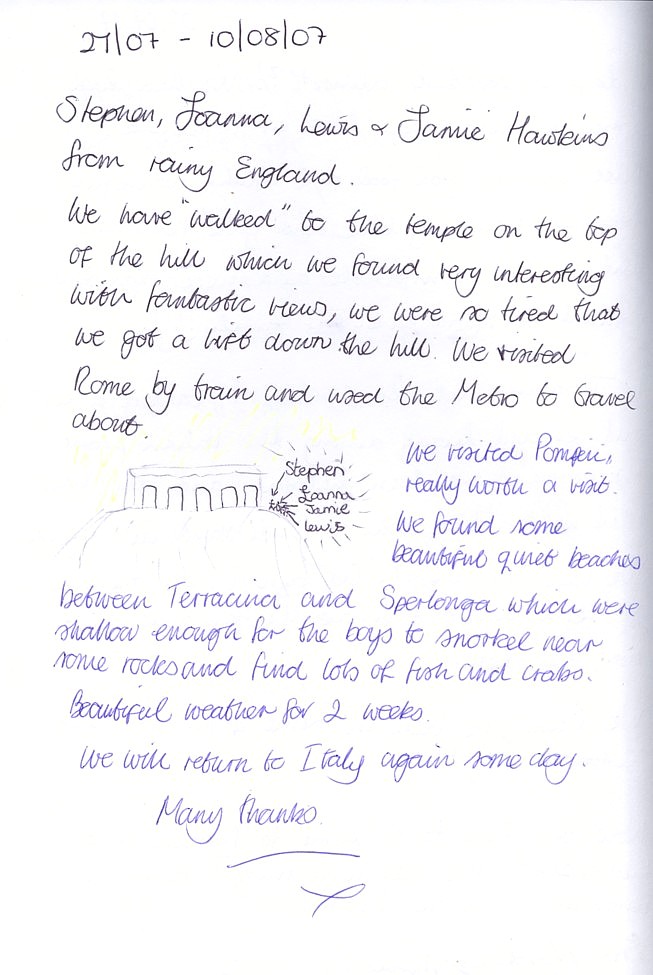 27/07 - 10/08/07
Stephen, Joanna, Lewis & Jamie Hawkins
from rainy England.
We have "walked" to the temple on the top
of the hill which we found very interesting
with fantastic views, we were so tired that
we got a lift down the hill. We visited
Rome by train and used the Metro to travel
about.
Stephen
Joanna
Jamie
Lewis
We visited Pompeii,
really worth a visit.
We found some
beautiful quiet beaches
between Terracina and Sperlonga which were
shallow enough for the boys to snorkel near
some rocks and find lots of fish and crabs.
Beautiful weather for 2 weeks.
We will return to Italy again some day.
Many thanks.